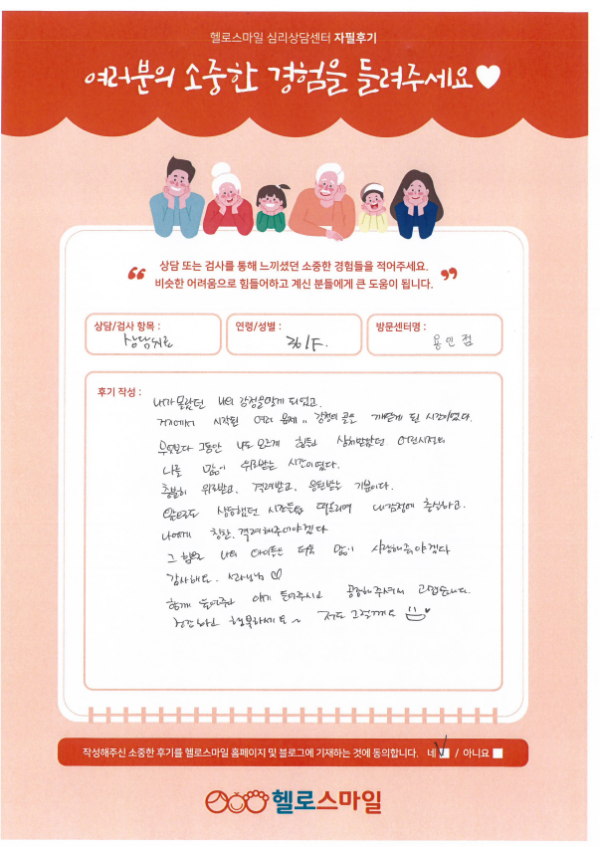 헬로스마일 심리상담센터 자필후기
여러분의 소중한 경험을 들려주세요♥
상담 또는 검사를 통해 느끼셨던 소중한 경험들을 적어주세요.
비슷한 어려움으로 힘들어하고 계신 분들에게 큰 도움이 됩니다.
상담/검사 항목 :
상담치료
연령/성별 :
36/F.
방문센터명 :
용인점
후기 작성 :
내가 몰랐던 나의 감정을 알게 되었고.
거기에서 시작된 여러 문제, 감정의 골을 깨닫게 된 시간이었다.
무엇보다 그동안 나도 모르게 힘들고 상처받았던 어린시절의
나를 많이 위로받는 시간이었다.
충분히 위로받고, 격려받고, 응원받는 기분이다.
앞으로도 상담했던 시간들을 떠올리며 내 감정에 충실하고.
나에게 칭찬, 격려해주어야겠다
그 힘으로 나의 아이들은 더욱 많이 사랑해줘야겠다
감사해요. 선생님 ♡
함께 들어주고 얘기 들어주시고 공감해주셔서 고맙습니다.
건강하고 행복하세요~ 저도 그럴게요
작성해주신 소중한 후기를 헬로스마일 홈페이지 및 블로그에 기재하는 것에 동의합니다. 네 ✓ / 아니요
헬로스마일